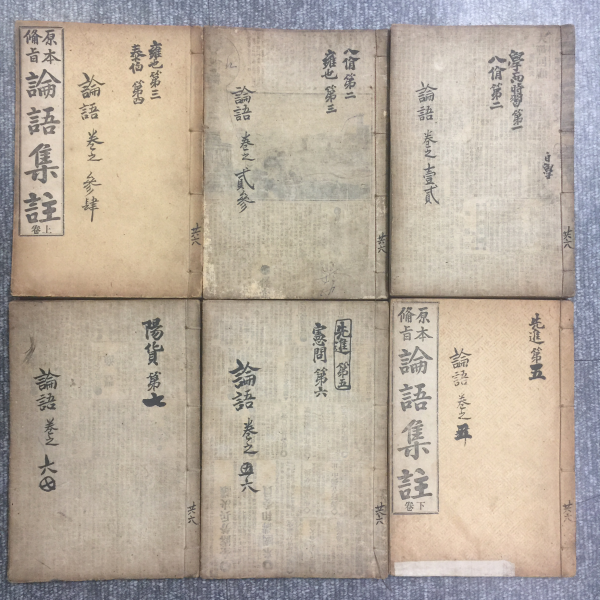 學而時習 第一
八佾 第二
論語 卷之壹貳
共六
八佾 第二
雍也 第三
論語 卷之貳參
共六
雍也 第三
泰伯 第四
論語 卷之參肆
原本
備旨
論語集註
卷上
共六
先進 第五
論語 卷之五
原本
備旨
論語集註
卷下
共六
先進 第五
憲問 第六
論語 卷之五六
共六
陽貨 第七
論語 卷之六七
共六